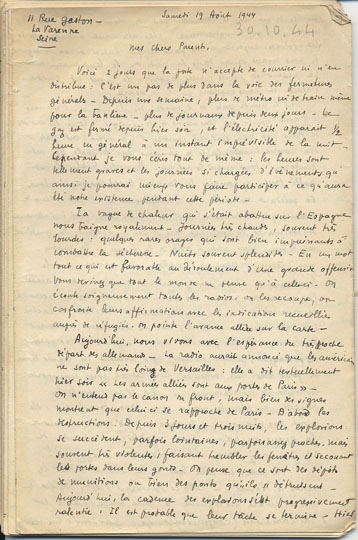 11 Rue Gaston -
La Varenne
Seine
Samedi 19 Août 1944
30.10.44
Mes chers Parents,
Voici 2 jours que la poste n'accepte de courrier ni n'en
distribue : C'est un pas de plus dans la voie des fermetures
générales - Depuis une semaine, plus de métro ni de train même
pour la banlieue - plus de journaux depuis deux jours - Le
gaz est fermé depuis hier soir, et l'électricité apparait 1/2
heure en général à un instant imprévisible de la nuit -
Cependant je vous écris tout de même : les heures sont
tellement graves et les journées si chargées d'événements qu'
ainsi je pourrai mieux vous faire participer à ce qu'aura
été notre existence pendant cette période -
La vague de chaleur qui s'était abattue sur l'Espagne
nous baigne royalement - Journées très chaudes, souvent très
lourdes : quelques rares orages qui sont bien impuissants à
combattre la sécheresse - Nuits souvent splendides - En un mot
tout ce qui est favorable au déroulement d'une grande offensive
Vous devinez que tout le monde ne pense qu'à celle-ci - On
écoute soigneusement toutes les radios, on les recoupe, on
confronte leurs affirmations avec les indications recueillies
auprès de réfugiés - On pointe l'avance alliée sur la carte -
Aujourd'hui, nous vivons avec l'espérance du très proche
départ des allemands - La radio aurait annoncé que les américains
ne sont pas très loin de Versailles : elle a dit textuellement
hier soir « Les armées alliées sont aux portes de Paris » -
On n'entend pas le canon du front, mais bien des signes
montrent que celui ci se rapproche de Paris - D'abord les
destructions : Depuis 3 jours et trois nuits, les explosions
se succèdent, parfois lointaines, parfois assez proches, mais
souvent très violentes, faisant trembler les fenêtres et secouant
les portes dans leurs gonds - On pense que ce sont des dépôts
de munitions ou bien des ponts qu'ils détruisent -
Aujourd'hui, la cadence des explosions s'est progressivement
ralentie : Il est probable que leur tâche se termine - Hier